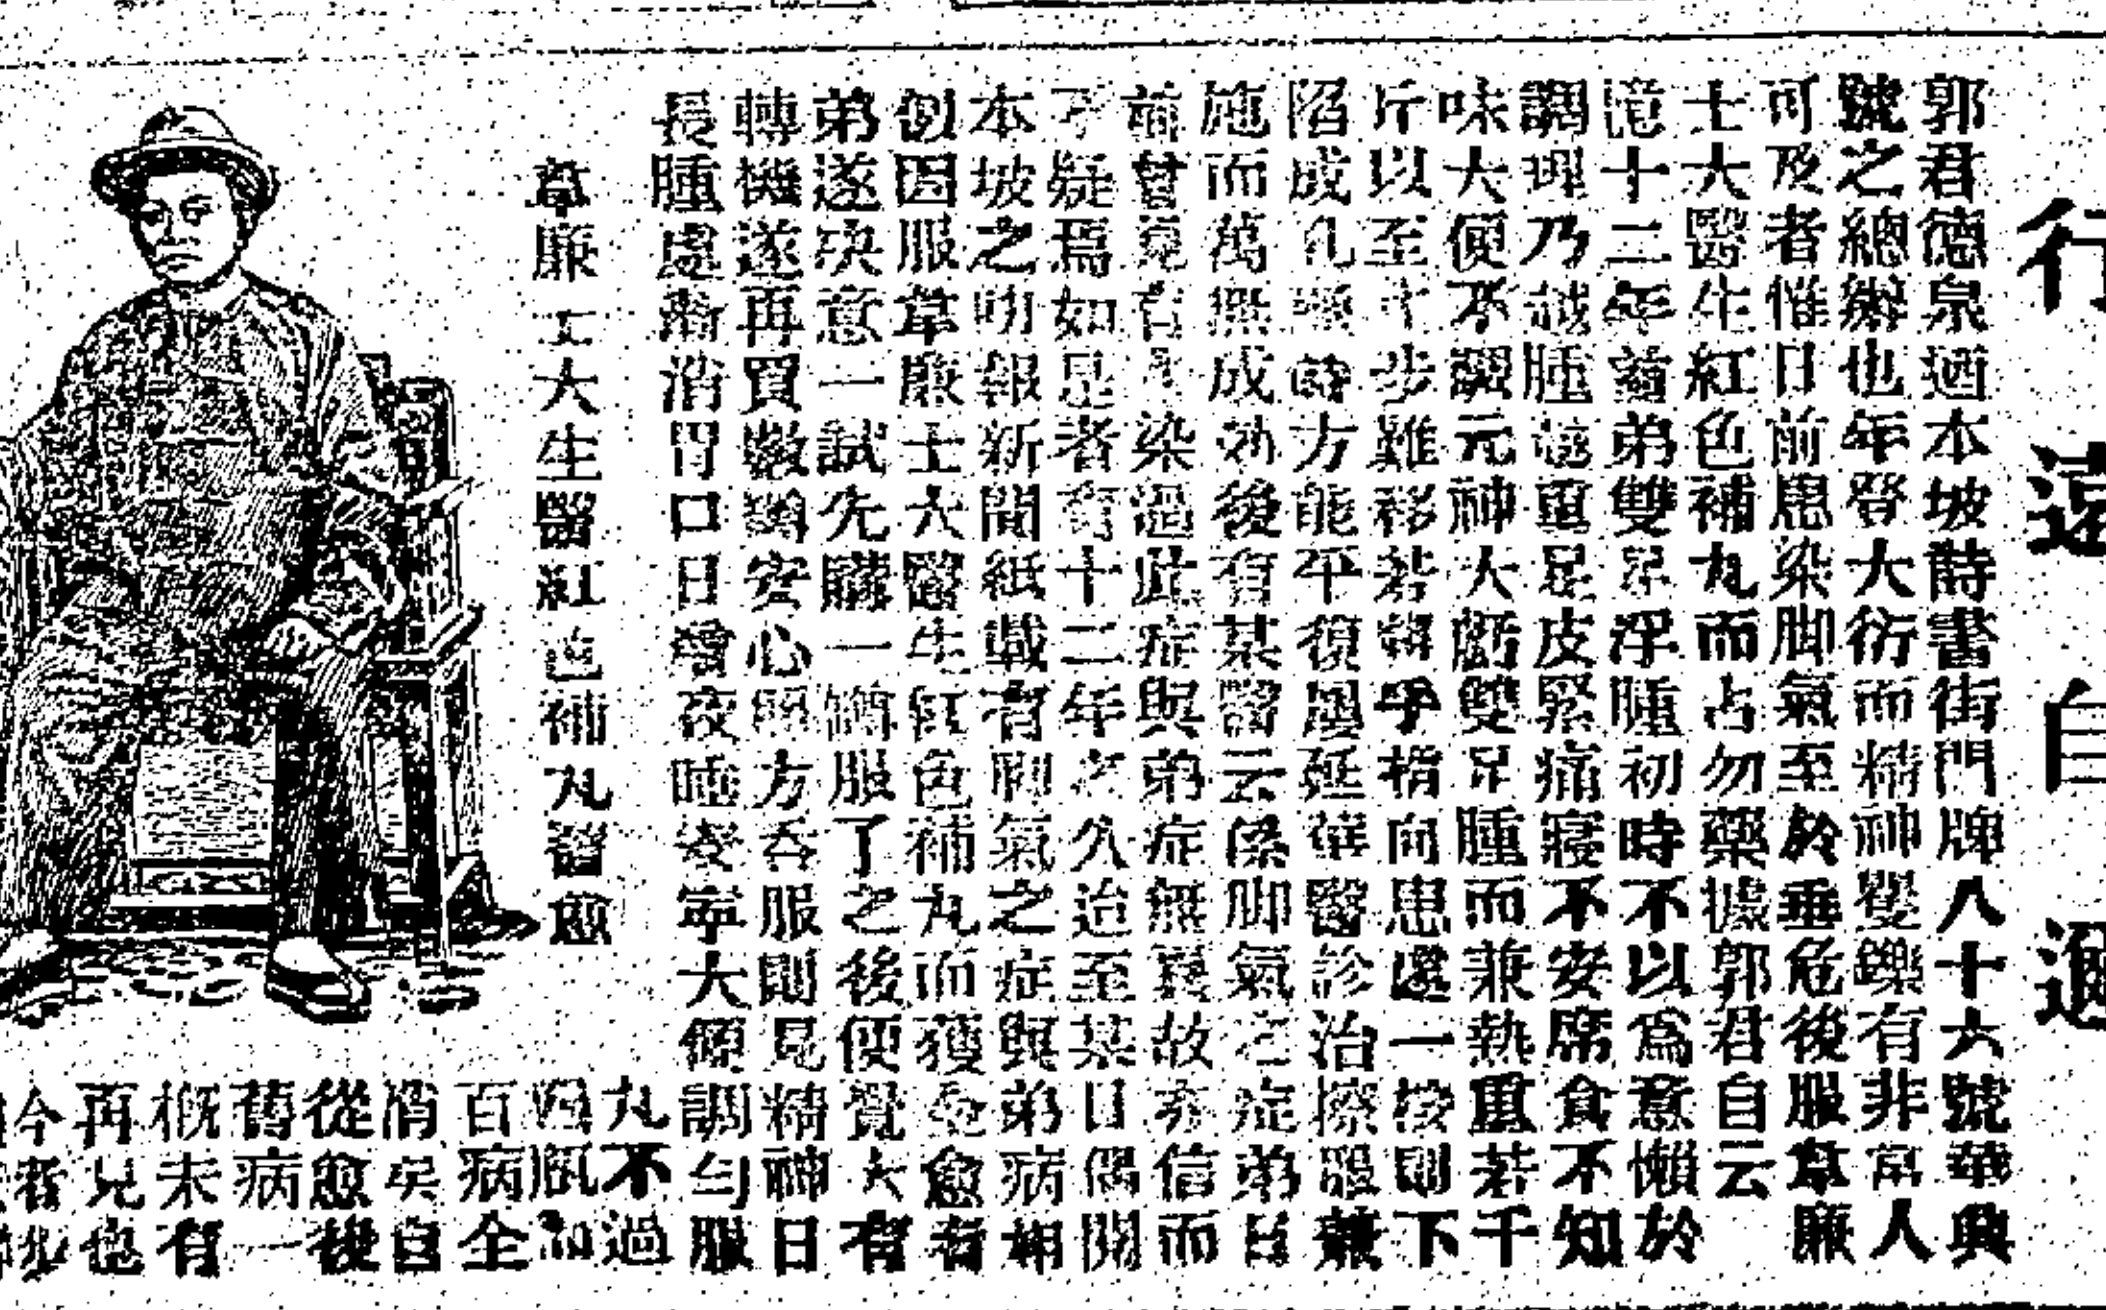 行遠自邇
郭君德泉迺本坡詩書街門牌八十六號華興
號之總辦也年登大衍而精神矍鑠有非常人
可及者惟日前患染脚氣至於垂危後服韋廉
士大醫生紅色補丸而占勿藥據郭君自云
十二年前弟雙足浮腫初時不以爲意懶於
調理乃越腫越重足皮緊痛寢不安席食不知
味大便不調元神大虧雙足腫而兼熱重若千
斤以至寸步難移若舉手指向患處一按則下
陷成孔要時方能平復屢延華醫診治擦服兼
施而萬無成効後有某醫云係脚氣之症弟日
前曾見有人染過此症與弟症無異故亦信而
不疑焉如是者有十二年之久迨至某日偶閱
本坡之叻報新聞紙載有脚氣之症與弟病相
似因服韋廉士大醫生紅色補丸而獲全愈者
弟遂决意一試先購一罇服了之後便覺大有
轉機遂再買數罇安心照方吞服則見精神日
長腫處漸消胃口日增夜睡安寧大便調勻服
韋廉士大生醫紅色補丸皆愈
丸不過
四瓶而
百病全
消矣自
從愈後
舊病一
概未有
再見也
今者